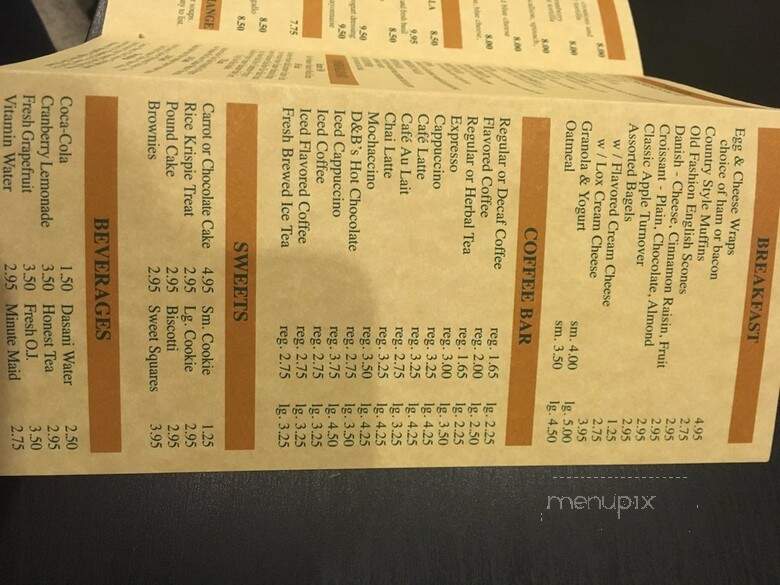 BREAKFAST
Egg & Cheese Wraps
choice of ham or bacon 4.95
Country Style Muffins 2.75
Old Fashion English Scones 2.95
Danish - Cheese, Cinnamon Raisin, Fruit 2.95
Croissant - Plain, Chocolate, Almond 2.95
Classic Apple Turnover 2.95
Assorted Bagels 1.25
w / Flavored Cream Cheese 2.75
w / Lox Cream Cheese 3.95
Granola & Yogurt sm. 4.00 lg. 5.00
Oatmeal sm. 3.50 lg. 4.50
COFFEE BAR
Regular or Decaf Coffee reg. 1.65 lg. 2.25
Flavored Coffee reg. 2.00 lg. 2.50
Regular or Herbal Tea reg. 1.65 lg. 2.25
Espresso reg. 3.00 lg. 3.50
Cappuccino reg. 3.25 lg. 4.25
Café Latte reg. 3.25 lg. 4.25
Café Au Lait reg. 2.75 lg. 3.25
Chai Latte reg. 3.25 lg. 4.25
Mochaccino reg. 3.50 lg. 4.25
D&B's Hot Chocolate reg. 2.75 lg. 3.50
Iced Cappuccino reg. 3.75 lg. 4.50
Iced Coffee reg. 2.75 lg. 3.25
Iced Flavored Coffee reg. 2.75 lg. 3.25
Fresh Brewed Ice Tea reg. 2.75 lg. 3.25
SWEETS
Carrot or Chocolate Cake 4.95 Sm. Cookie 1.25
Rice Krispie Treat 2.95 Lg. Cookie 2.95
Pound Cake 2.95 Biscotti 2.95
Brownies 2.95 Sweet Squares 3.95
BEVERAGES
Coca-Cola 1.50 Dasani Water 2.50
Cranberry Lemonade 3.50 Honest Tea 2.95
Fresh Grapefruit 3.50 Fresh O.J. 3.50
Vitamin Water 2.95 Minute Maid 2.75
8.00
8.00
8.00
8.00
8.50
9.95
8.50
9.50
9.50
7.75
8.50
8.50
menupix